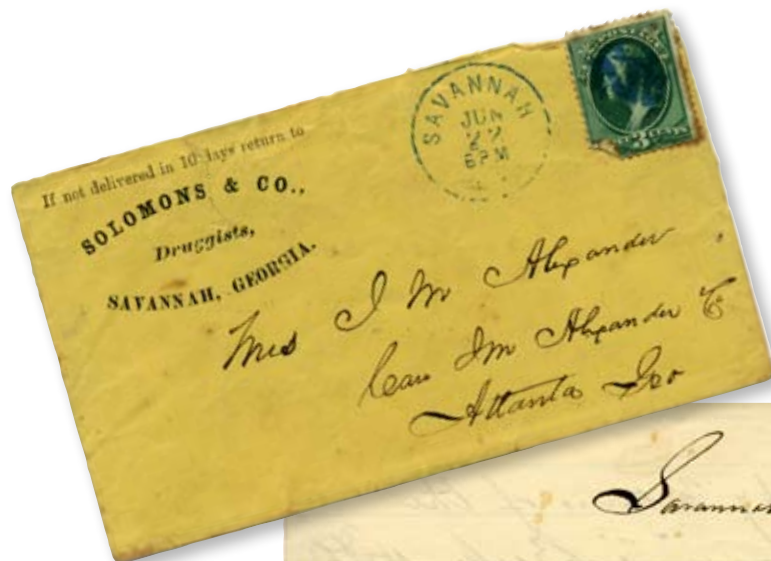 If not delivered in 10 days return to
SOLOMONS & CO.,
Druggists,
SAVANNAH, GEORGIA.
SAVANNAH
JUN
22
6PM
Mrs J M Alexander
Care J M Alexander &
Atlanta Geo
Savannah